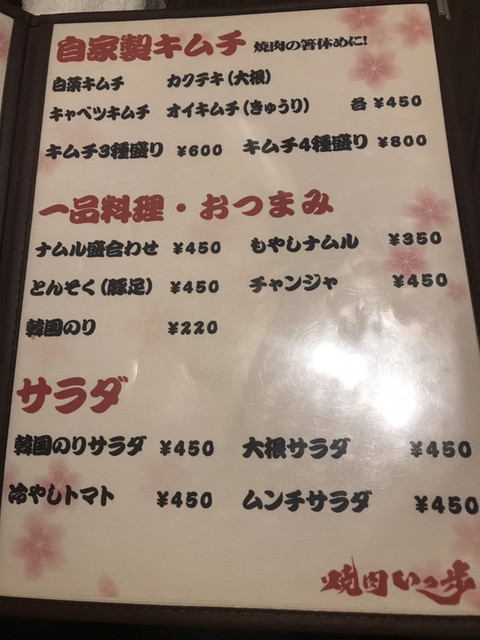 自家製キムチ 焼肉の箸休めに!
白菜キムチ カクテキ(大根)
キャベツキムチ オイキムチ(きゅうり) 各 ¥450
キムチ3種盛り ¥600 キムチ4種盛り ¥800
一品料理・おつまみ
ナムル盛合わせ ¥450 もやしナムル ¥350
とんそく(豚足) ¥450 チャンジャ ¥450
韓国のり ¥220
サラダ
韓国のりサラダ ¥450 大根サラダ ¥450
冷やしトマト ¥450 ムンチサラダ ¥450
焼肉いっ歩